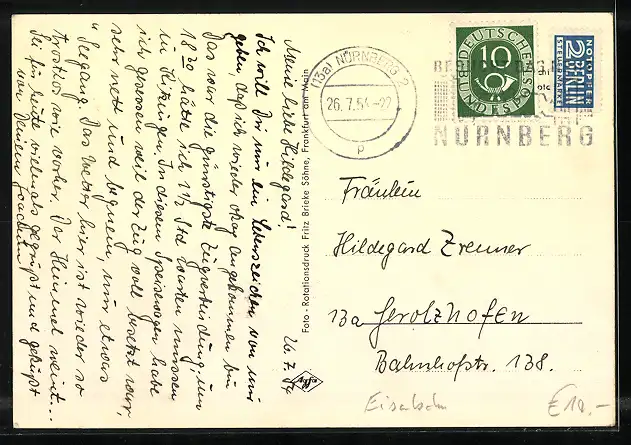 26. 7. 54
Meine liebe Hildegard!
Ich will Dir nur ein Lebenszeichen von mir
geben, daß ich wieder okay angekommen bin
Das war die günstigste Zugverbindung, um
18 30 hätte ich 1 1/2 Std warten müssen
in Kitzingen. In diesem Speisewagen habe
ich gesessen weil der Zug voll besetzt war,
sehr nett und bequem, nur etwas
"Seegang". Das Wetter hier ist wieder so
trostlos wie vorher. Der Himmel weint...
Sei für heute vielmals gegrüßt und geküßt
von Deinem Joachim
Foto - Rotationsdruck Fritz Brieke Söhne, Frankfurt am Main
Agfa
(13a) NÜRNBERG 2
26.7.54-22
P
NÜRNBERG
DEUTSCHE BUNDESPOST
10
NOTOPFER
2 BERLIN
STEUERMARKE
Fräulein
Hildegard Zrenner
13a Gerolzhofen
Bahnhofstr. 138.
Eisenbahn
€ 10.-